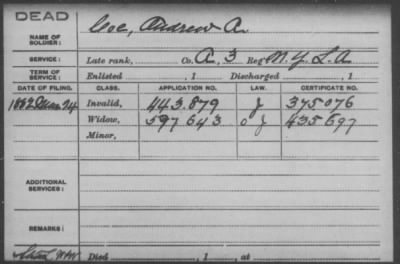 DEAD
NAME OF SOLDIER: Coe, Andrew A.
SERVICE: Late rank, Co. A, 3 Reg't N.Y. L.A.
TERM OF SERVICE: Enlisted , 1 Discharged , 1
DATE OF FILING. CLASS. APPLICATION NO. LAW. CERTIFICATE NO.
1882 24 Invalid, 443.879 J 375076
Widow, 597643 J 435697
Minor,
ADDITIONAL SERVICES:
REMARKS:
Died , 1 , at